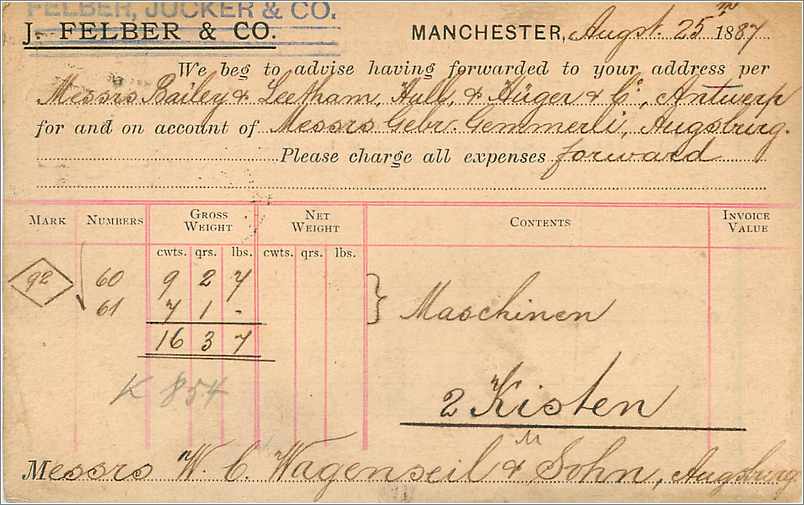 FELBER, JUCKER & CO.
J. FELBER & CO.
MANCHESTER, Augst. 25th 1887
We beg to advise having forwarded to your address per
Messrs Bailey & Leetham, Hull, & Hüger & Co, Antwerp
for and on account of Messrs Gebr. Gemmerli, Augsburg.
Please charge all expenses forward
MARK NUMBERS GROSS WEIGHT NET WEIGHT CONTENTS INVOICE VALUE
cwts. qrs. lbs. cwts. qrs. lbs.
92 60 9 2 7
61 7 1 -
Maschinen
16 3 7
K 854
2 Kisten
Messrs W. C. Wagenseil & Sohn, Augsburg